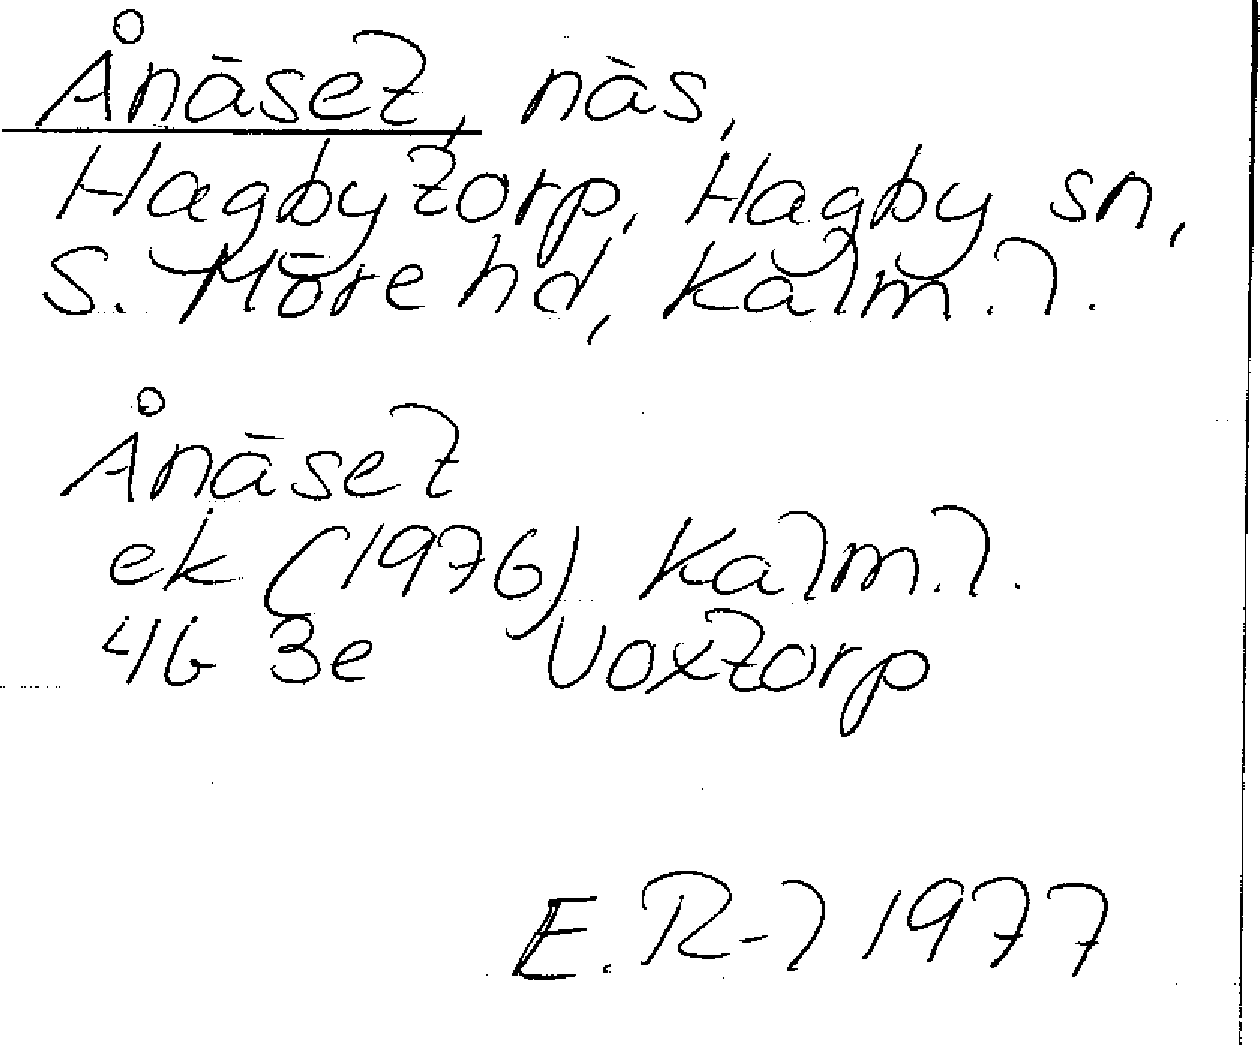 Ånäset, näs,
Hagbytorp, Hagby sn,
S. Möre hd, Kalm. l.
Ånäset
ek (1976) Kalm. l.
4G 3e Voxtorp
E. R-l 1977